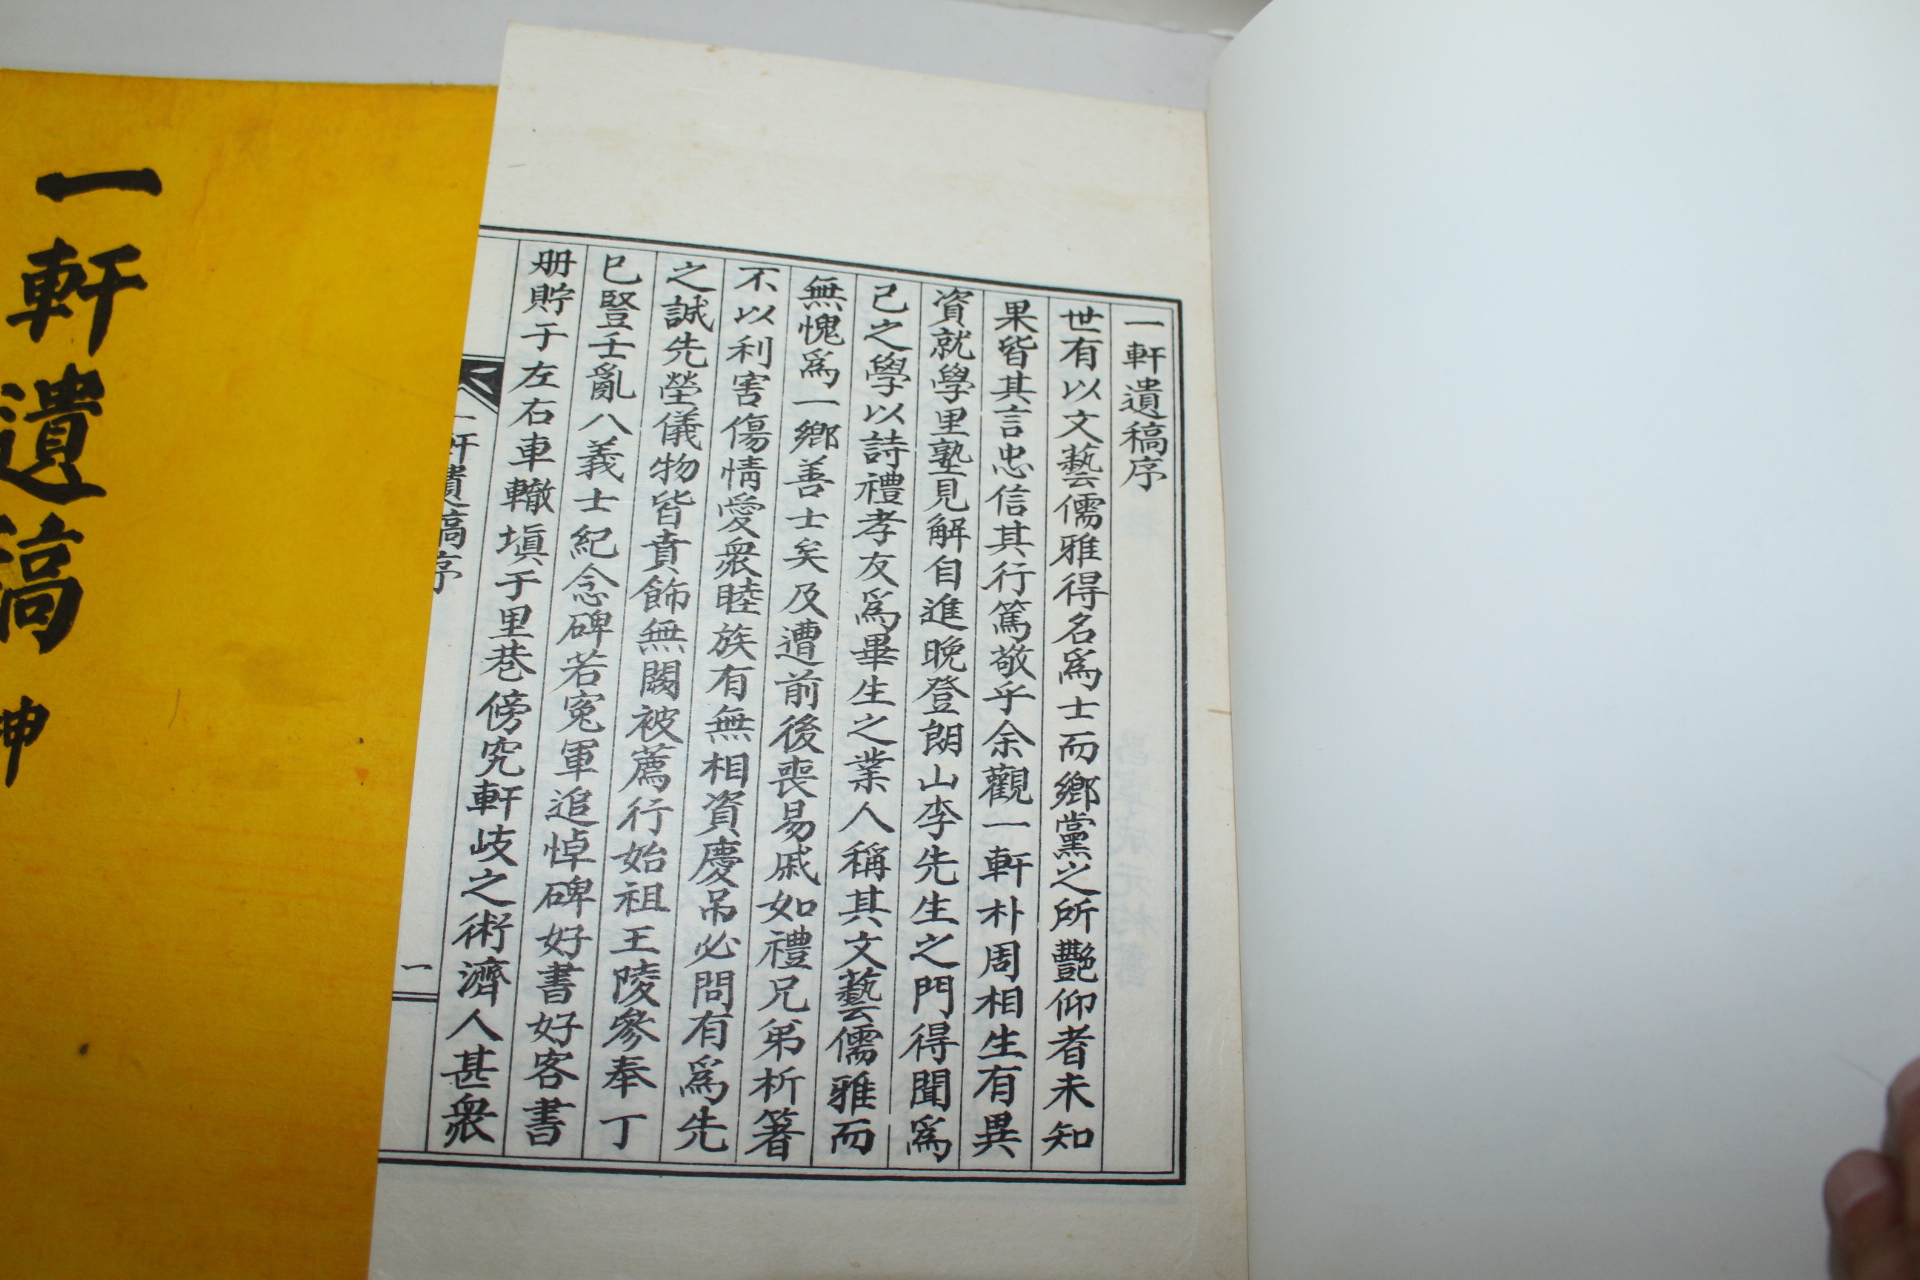 一軒遺稿序
世有以文藝儒雅得名爲士而鄕黨之所艷仰者未知
果皆其言忠信其行篤敬乎余觀一軒朴周相生有異
資就學里塾見解自進晩登朗山李先生之門得聞爲
己之學以詩禮孝友爲畢生之業人稱其文藝儒雅而
無愧爲一鄕善士矣及遭前後喪易戚如禮兄弟析箸
不以利害傷情愛衆睦族有無相資慶吊必問有爲先
之誠先塋儀物皆賁飾無闕被薦行始祖王陵參奉丁
巳竪壬亂八義士紀念碑若寃軍追悼碑好書好客書
册貯于左右車轍塡于里巷傍究軒岐之術濟人甚衆
一軒遺稿序
一
一軒遺稿 坤